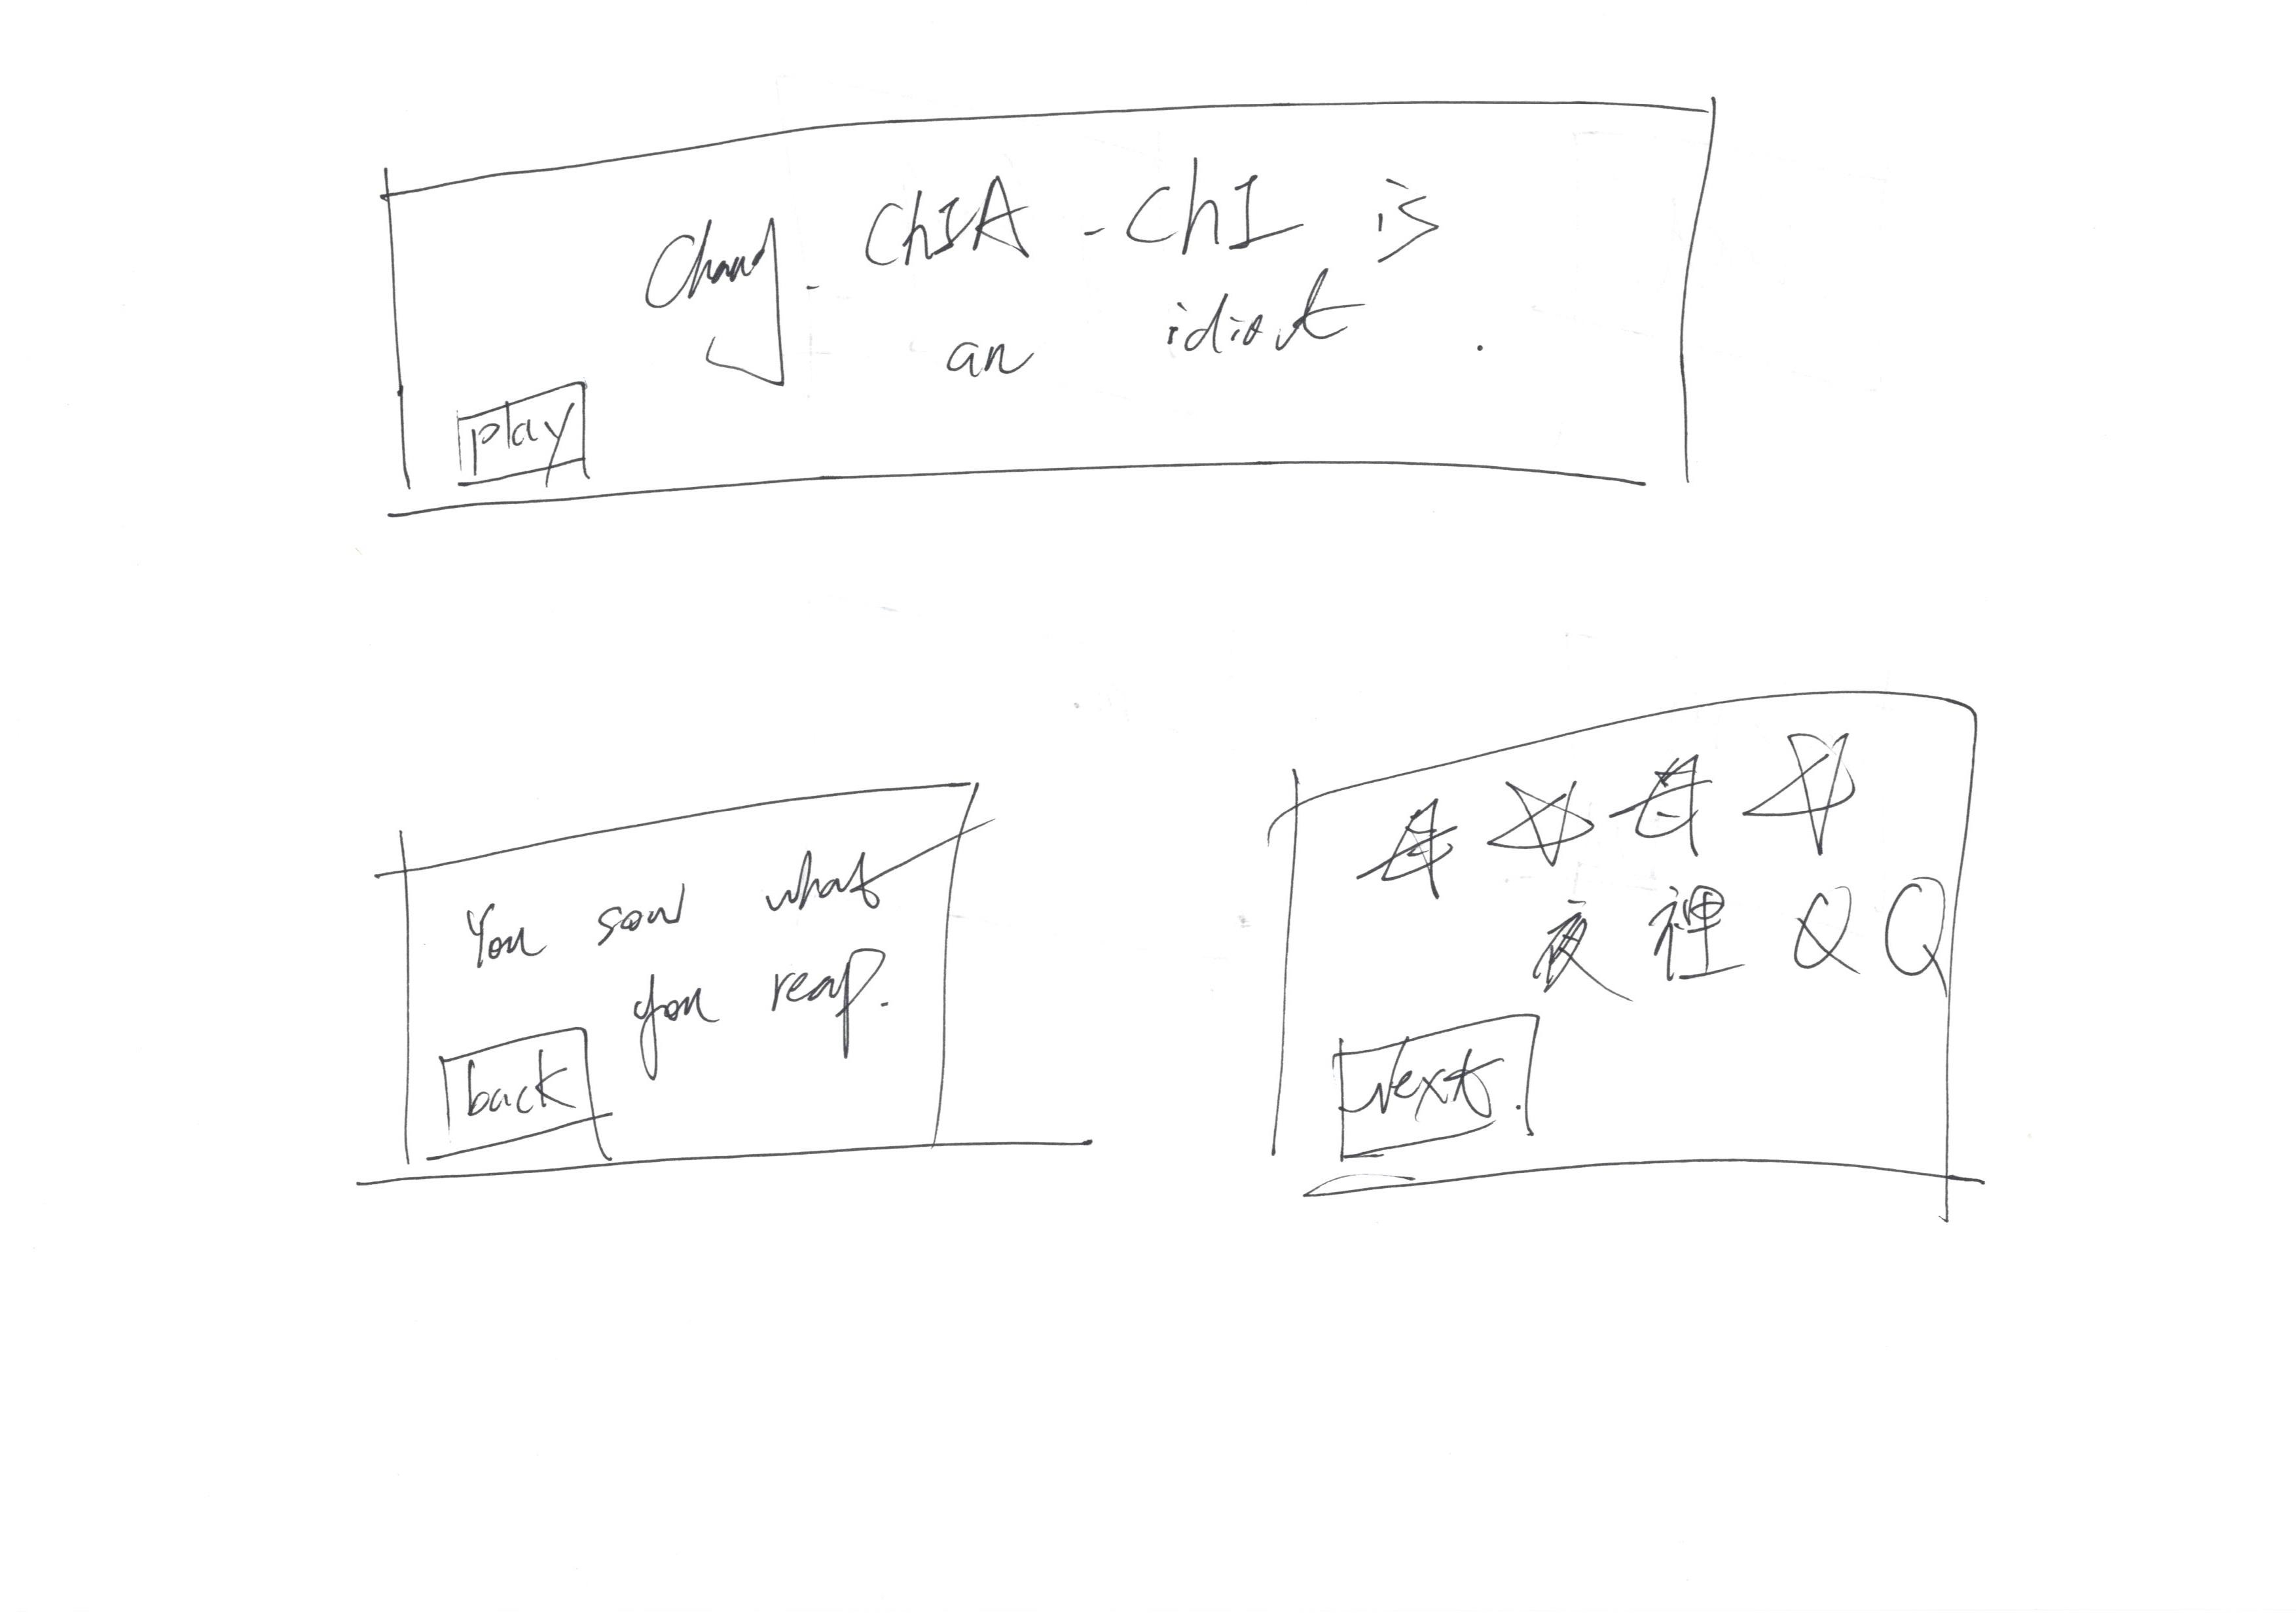 Chang-ChIA-ChI is
an idiot.
play
You sow what
you reap.
back
夜裡QQ
Next.